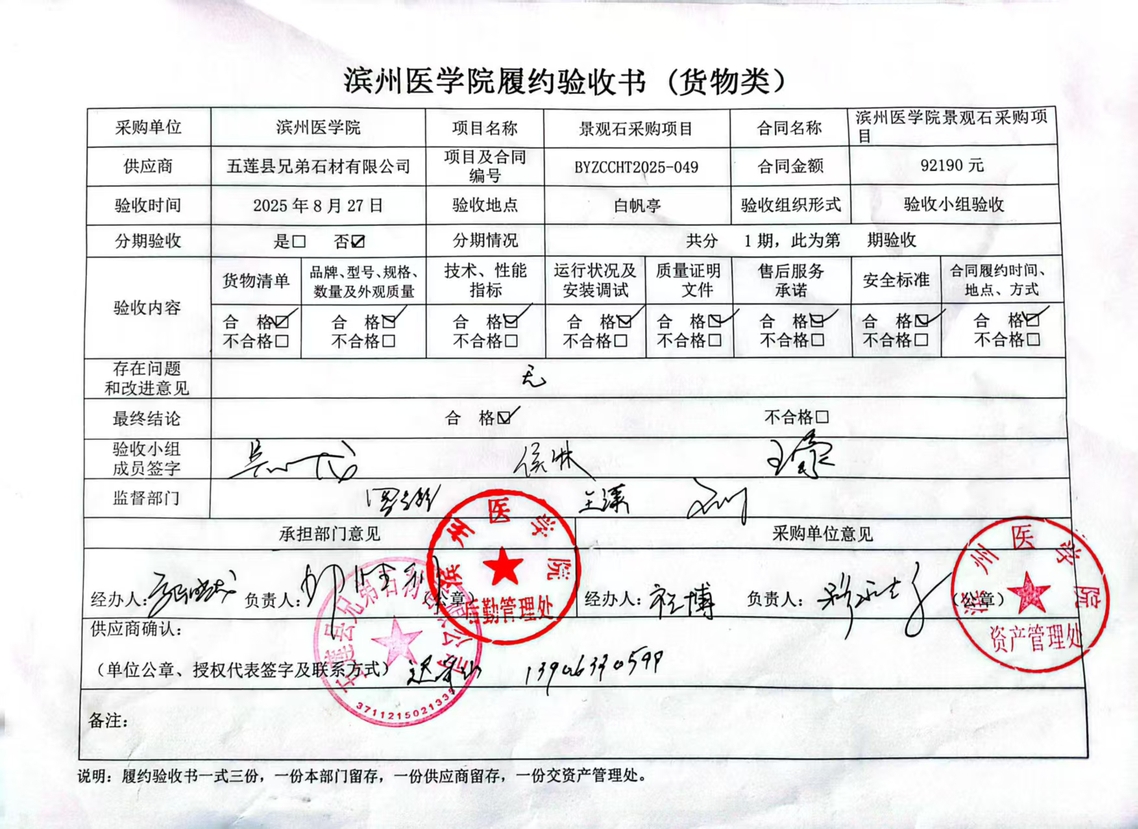 滨州医学院履约验收书（货物类）
采购单位 滨州医学院 项目名称 景观石采购项目 合同名称 滨州医学院景观石采购项
目
供应商 五莲县兄弟石材有限公司 项目及合同
编号 BYZCCHT2025-049 合同金额 92190 元
验收时间 2025 年 8 月 27 日 验收地点 白帆亭 验收组织形式 验收小组验收
分期验收 是□ 否☑ 分期情况 共分 1 期，此为第 期验收
验收内容 货物清单 品牌、型号、规格、
数量及外观质量 技术、性能
指标 运行状况及
安装调试 质量证明
文件 售后服务
承诺 安全标准 合同履约时间、
地点、方式
合 格☑ 合 格☑ 合 格☑ 合 格☑ 合 格☑ 合 格☑ 合 格☑ 合 格☑
不合格□ 不合格□ 不合格□ 不合格□ 不合格□ 不合格□ 不合格□ 不合格□
存在问题
和改进意见 无
最终结论 合 格☑ 不合格□
验收小组
成员签字 侯林
监督部门
承担部门意见 采购单位意见
经办人： 负责人： 公章 经办人： 负责人： （公章）
滨州医学院
后勤管理处
滨州医学院
资产管理处
供应商确认：
（单位公章、授权代表签字及联系方式）
五莲县兄弟石材有限公司
备注：
说明：履约验收书一式三份，一份本部门留存，一份供应商留存，一份交资产管理处。